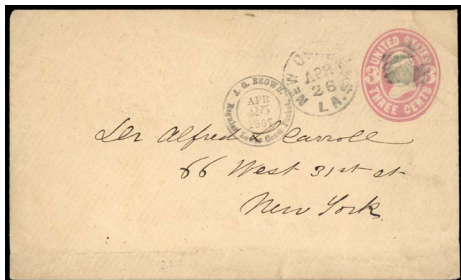 UNITED STATES
THREE CENTS
NEW
APR
26
LA.
A. G. BROWE
APR
25
Dr Alfred L Carroll
66 West 31st st
New York